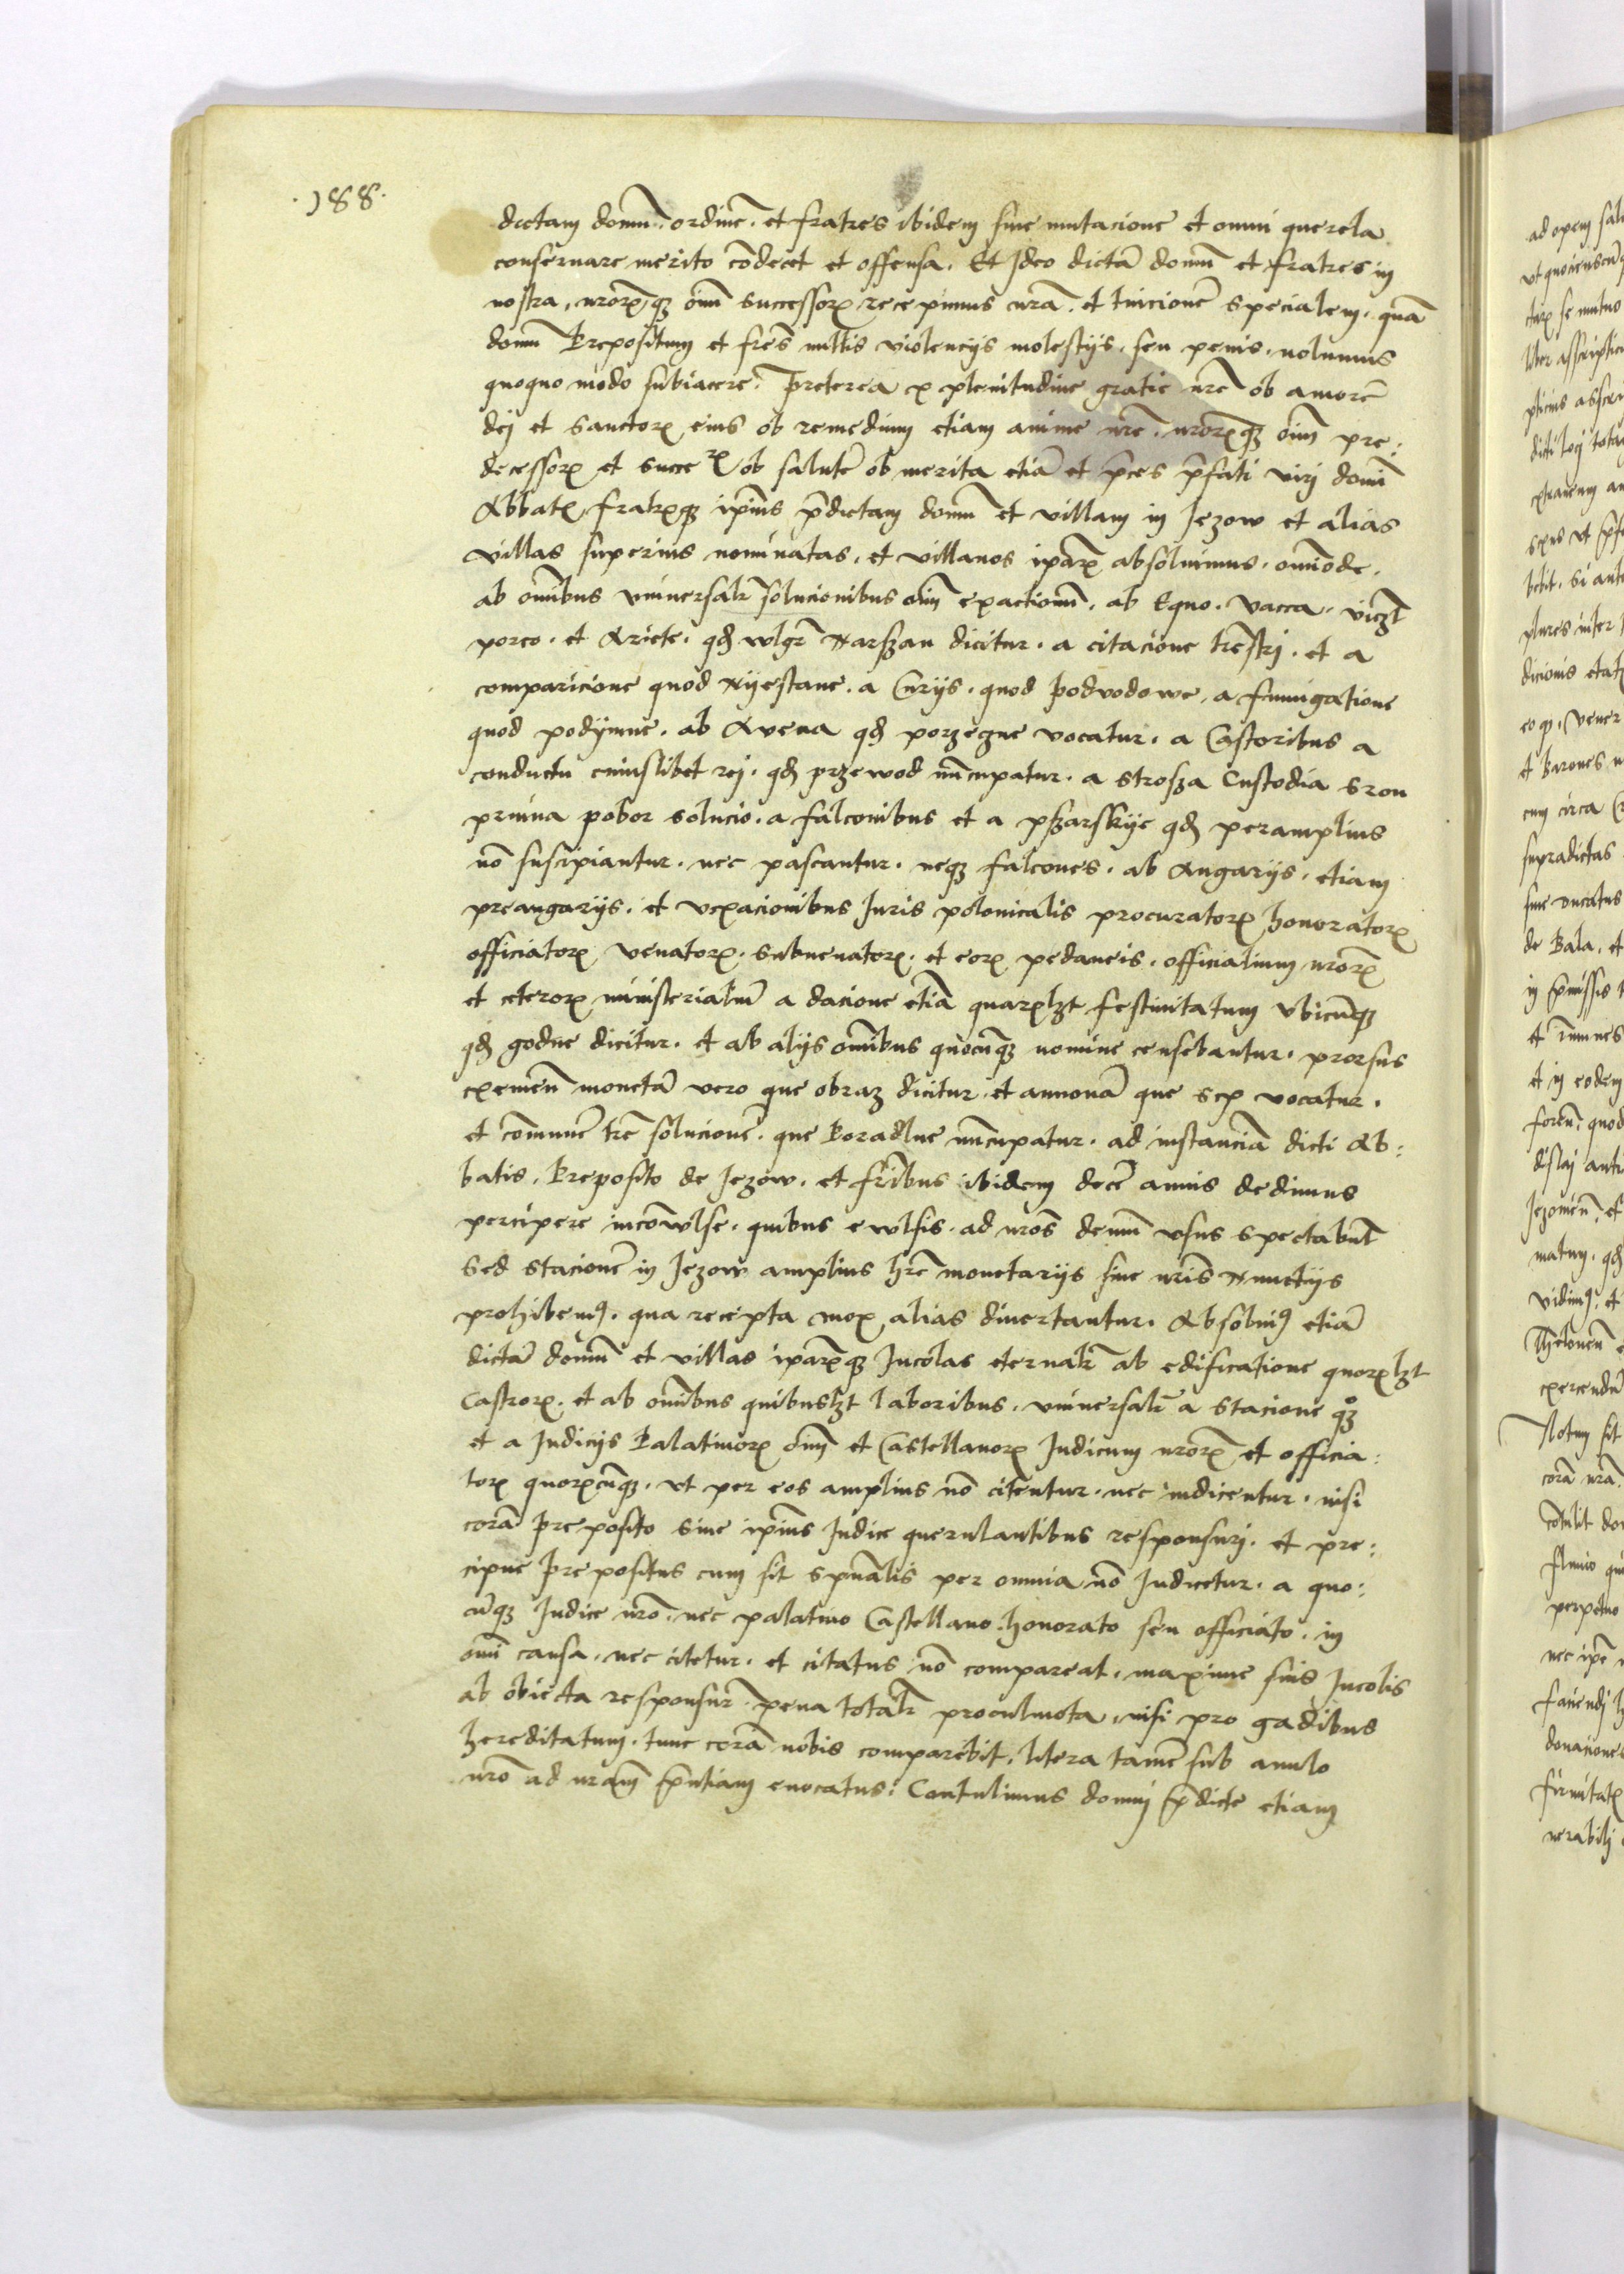 ·188·
dictam domũ. ordinẽ. et fratres ibidem sine mutacione et omni querela
conseruare merito cõdecet et offensa. Et Ideo dictã domũ et fratres in
nostra, nrorꝝqꝫ oim̃ successorꝝ recepimus curã. et tuicionẽ specialem. quã
domũ Prepositum et frẽs nullis violencijs molestijs. seu penis. volumus
quoquo modo subiacere. Preterea ex plenitudine gratie nrẽ ob amorẽ
dej et Sanctorꝝ eius ob remedium etiam anime nrẽ. nrorꝝqꝫ oim̃ pre:
decessorꝝ et succeꝝ ob salutẽ ob merita etiã et p̃ces p̃fati virj domi
Abbatꝭ, fratrꝝqꝫ ipĩus p̃dictam domũ et villam in Jezow et alias
villas superius nominatas. et villanos iparꝝ absoluimus. omĩode.
ab omĩbus vniuersalr̃ solucionibus oim̃ exactionũ. ab Equo. Vacca. viczt
porco. et Ariete. qđ wlgr̃ Narszan dicitur. a citacione trẽstrj. et a
comparicione quod Nyestane. a Curijs. quod podvodowe, a fumigatione
quod podymne. ab Avena qđ porzezne vocatur. a Castoribus a
conductu cuiuslibet rej. qđ przewod nũcupatur. a strosza Custodia sron
pruina pobor solucio. a falconibus et a pszarskye qđ peramplius
nõ suscipiantur. nec pascantur. neqꝫ falcones. ab Angarijs. etiam
preangarijs. et vexacionibus Juris polonicalis procuratorꝝ honoratorꝝ
officiatorꝝ venatorꝝ. Subuenatorꝝ. et eorꝝ pedaneis. officialium nrorꝝ
et ceterorꝝ ministerialiũ a dacione etiã quarꝝlꝫt festiuitatum Vbicũqꝫ
qđ godne dicitur. et ab alijs omĩbus quocũqꝫ nomine censebantur. prorsus
exemem̃ monetã vero que obraz dicitur. et annonã que sep vocatur.
et cõmunẽ trẽ solucionẽ. que Poradlne nũcupatur. ad instanciã dicti Ab:
batis. Preposito de Jezow. et frĩbus ibidem decẽ annis dedimus
percipere incõwlse. quibus ewlsis. ad nros demũ vsus spectabũt
Sed stacionẽ in Jezow amplius hrẽ monetarijs siue nrĩs Nunctijs
prohibemꝰ. qua recepta mox alias diuertantur. Absoluimꝰ etiã
dictã domũ et villas iparꝝqꝫ Jncolas eternalr̃ ab edificatione quorꝝlꝫt
Castrorꝝ. et ab omĩbus quibuslꝫt laboribus. vniuersalr̃ a stacione qꝫ
et a Judicijs Palatinorꝝ oim̃ et Castellanorꝝ Judicum nrorꝝ et officia:
torꝝ quorꝝcũqꝫ. vt per eos amplius nõ citentur. nec iudicentur. nisi
corã Preposito siue ipĩus Judice querulantibus responsurj. et pre:
cipue Prepositus cum sit spũalis per omnia nõ Judicetur. a quo:
cũqꝫ Judice nrõ. nec palatino Castellano. honorato seu officiato. in
omĩ causa. nec citetur. et citatus nõ compareat. maxime suis Jncolis
ab obiecta responsur̃. pena totalr̃ proculmota, nisi pro gadibus
hereditatum. tunc corã nobis comparebit. litera tamẽ sub anulo
nrõ ad nrãm p̃ntiam euocatus: Contulimus domuj p̃dicte etiam